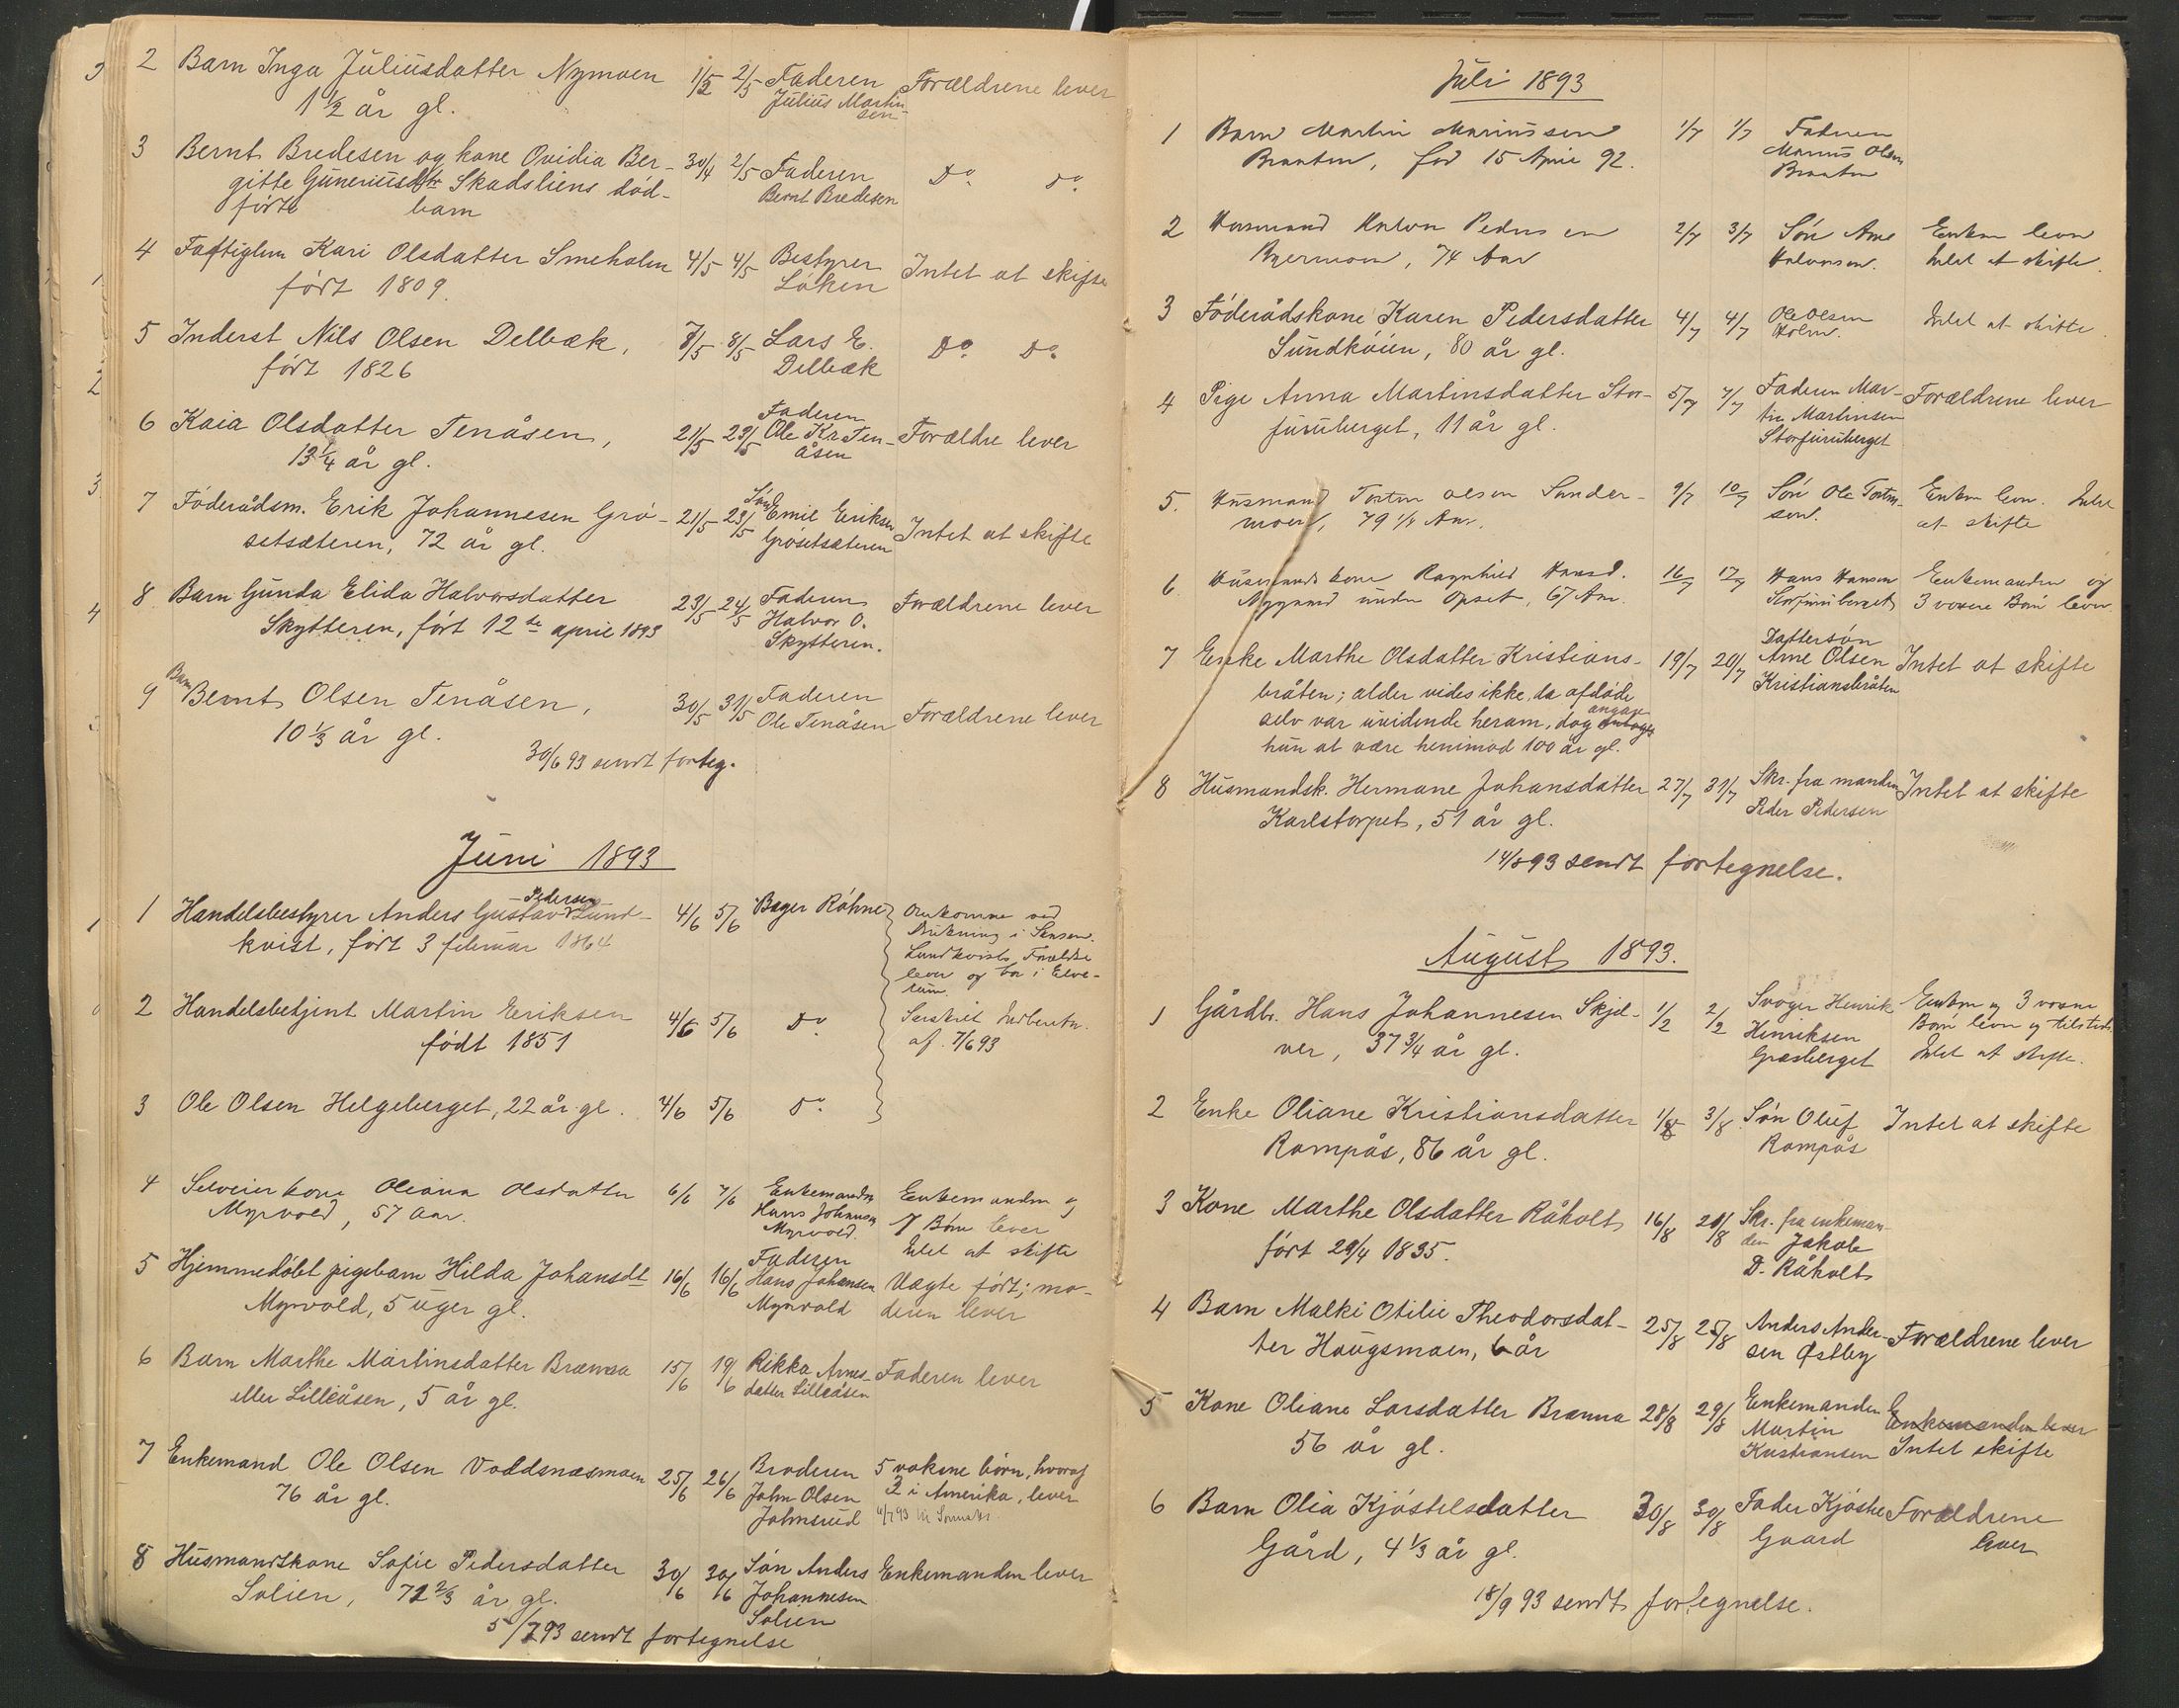 2 Barn Inga Juliusdatter Nymoen 1/5 2/5 Faderen Forældrene lever
1 1/2 år gl. Julius Martin-
sen
3 Bernt Bredesen og kone Ovidia Ber- 30/4 2/5 Faderen Do Do
gitte Guneriusdtr Skadsliens død- Bernt Bredesen
førte barn
4 Fattiglem Kari Olsdatter Smeholen 4/5 4/5 Bestyrer Intet at skifte
født 1809. Løken
5 Inderst Nils Olsen Delbæk, 7/5 8/5 Lars E. Do Do
født 1826 Delbæk
Faderen
6 Kaia Olsdatter Tenåsen, 21/5 23/5 Ole Kr. Ten- Forældre lever
13 1/4 år gl. åsen
7 Føderådsm. Erik Johannesen Grø- 21/5 23/5 Søn Emil Eriksen Intet at skifte
setsæteren, 72 år gl. Grøsetsæteren
8 Barn Gunda Elida Halvorsdatter 23/5 24/5 Faderen Forældrene lever
Skytteren, født 12te april 1893 Halvor O.
Skytteren.
9 Barn Bernt Olsen Tenåsen, 30/5 31/5 Faderen Forældrene lever
10 1/3 år gl. Ole Tenåsen
30/6 93 sendt forteg.
Juni 1893
1 Handelsbestyrer Anders Gustav Pedersen Lund- 4/6 5/6 Bager Røhne Omkomne ved
kvist, født 3 februar 1864 Drukning i
Lundkvists Forældre
lever og bor i Elve-
rum.
2 Handelsbetjent Martin Eriksen 4/6 5/6 Do Særskilt Indberetn.
født 1851 af 7/6 93
3 Ole Olsen Helgeberget, 22 år gl. 4/6 5/6 Do
4 Selveierkone Oliana Olsdatter 6/6 7/6 Enkemanden Enkemanden og
Myrvold, 57 Aar. Hans Johansen 7 Børn lever
Myrvold. Intet at skifte
5 Hjemmedøbt pigebarn Hilda Johansdt 16/6 16/6 Faderen Uægte født; mo-
Myrvold, 5 uger gl. Hans Johansen deren lever
Myrvold
6 Barn Marthe Martinsdatter Brænna 15/6 19/6 Rikka Arnes- Faderen lever
eller Lilleåsen, 5 år gl. datter Lilleåsen
7 Enkemand Ole Olsen Voddsnæsmoen 25/6 26/6 Broderen 5 voksne børn, hvoraf
76 år gl. John Olsen 2 i Amerika, lever
Johnsrud
8 Husmandskone Sofie Pedersdatter 30/6 30/6 Søn Anders Enkemanden lever
Solien, 72 2/3 år gl. Johannesen
Solien
5/7 93 sendt fortegnelse
Juli 1893
1 Barn Martin Mariussen 1/7 1/7 Faderen
Braaten, fød 15 April 92. Marius Olsen
Braaten
2 Husmand Halvor Pedersen 2/7 3/7 Søn Arne Enken lever
74 Aar Halvorsen. Intet at skifte.
3 Føderådskone Karen Pedersdatter 4/7 4/7 Ole Olsen Intet at skifte.
Sundkøien, 80 år gl. Holm.
4 Pige Anna Martinsdatter Stor- 5/7 7/7 Faderen Mar- Forældrene lever
furuberget, 11 år gl. tin Martinsen
Storfuruberget
5. Husmand Torsten Olsen Sander- 9/7 10/7 Søn Ole Torsten- Enken lever. Intet
moen, 79 1/4 Aar. sen. at skifte
6. Husmandskone Ragnhild Hansd. 16/7 17/7 Hans Hansen Enkemanden og
Nygaard under Opset, 67 Aar. Storfuruberget 3 voxne Børn lever.
Dattersøn
7 Enke Marthe Olsdatter Kristians- 19/7 20/7 Arne Olsen Intet at skifte
bråten; alder vides ikke, da afdøde Kristiansbråten
selv var uvidende herom, dog angav
hun at være henimod 100 år gl.
8 Husmandsk. Hermane Johansdatter 27/7 31/7 Skr. fra manden Intet at skifte
Karlstorpet, 51 år gl. Peder Pedersen
14/8 93 sendt fortegnelse.
August 1893.
1 Gårdbr. Hans Johannesen Skjel- 1/2 2/2 Svoger Henrik Enken og 3 voxne
ver, 37 3/4 år gl. Henriksen Børn lever og tilstede
Græsberget Intet at skifte.
2 Enke Oliane Kristiansdatter 1/8 3/8 Søn Oluf Intet at skifte
Rompås, 86 år gl. Rompås
3 Kone Marthe Olsdatter Råholt 16/8 20/8 Skr. fra enkeman-
født 29/4 1835. den Jakob
D. Råholt
4 Barn Malki Otilie Theodorsdat- 25/8 25/8 Anders Ander- Forældrene lever
ter Haugsmoen, 6 år sen Østby
5 Kone Oliane Larsdatter Brænna 28/8 29/8 Enkemanden Enkemanden lever
56 år gl. Martin Intet skifte
Kristiansen
6 Barn Olia Kjøstelsdatter 30/8 30/8 Fader Kjøstel Forældrene
Gård, 4 1/3 år gl. Gaard lever
18/9 93 sendt fortegnelse.